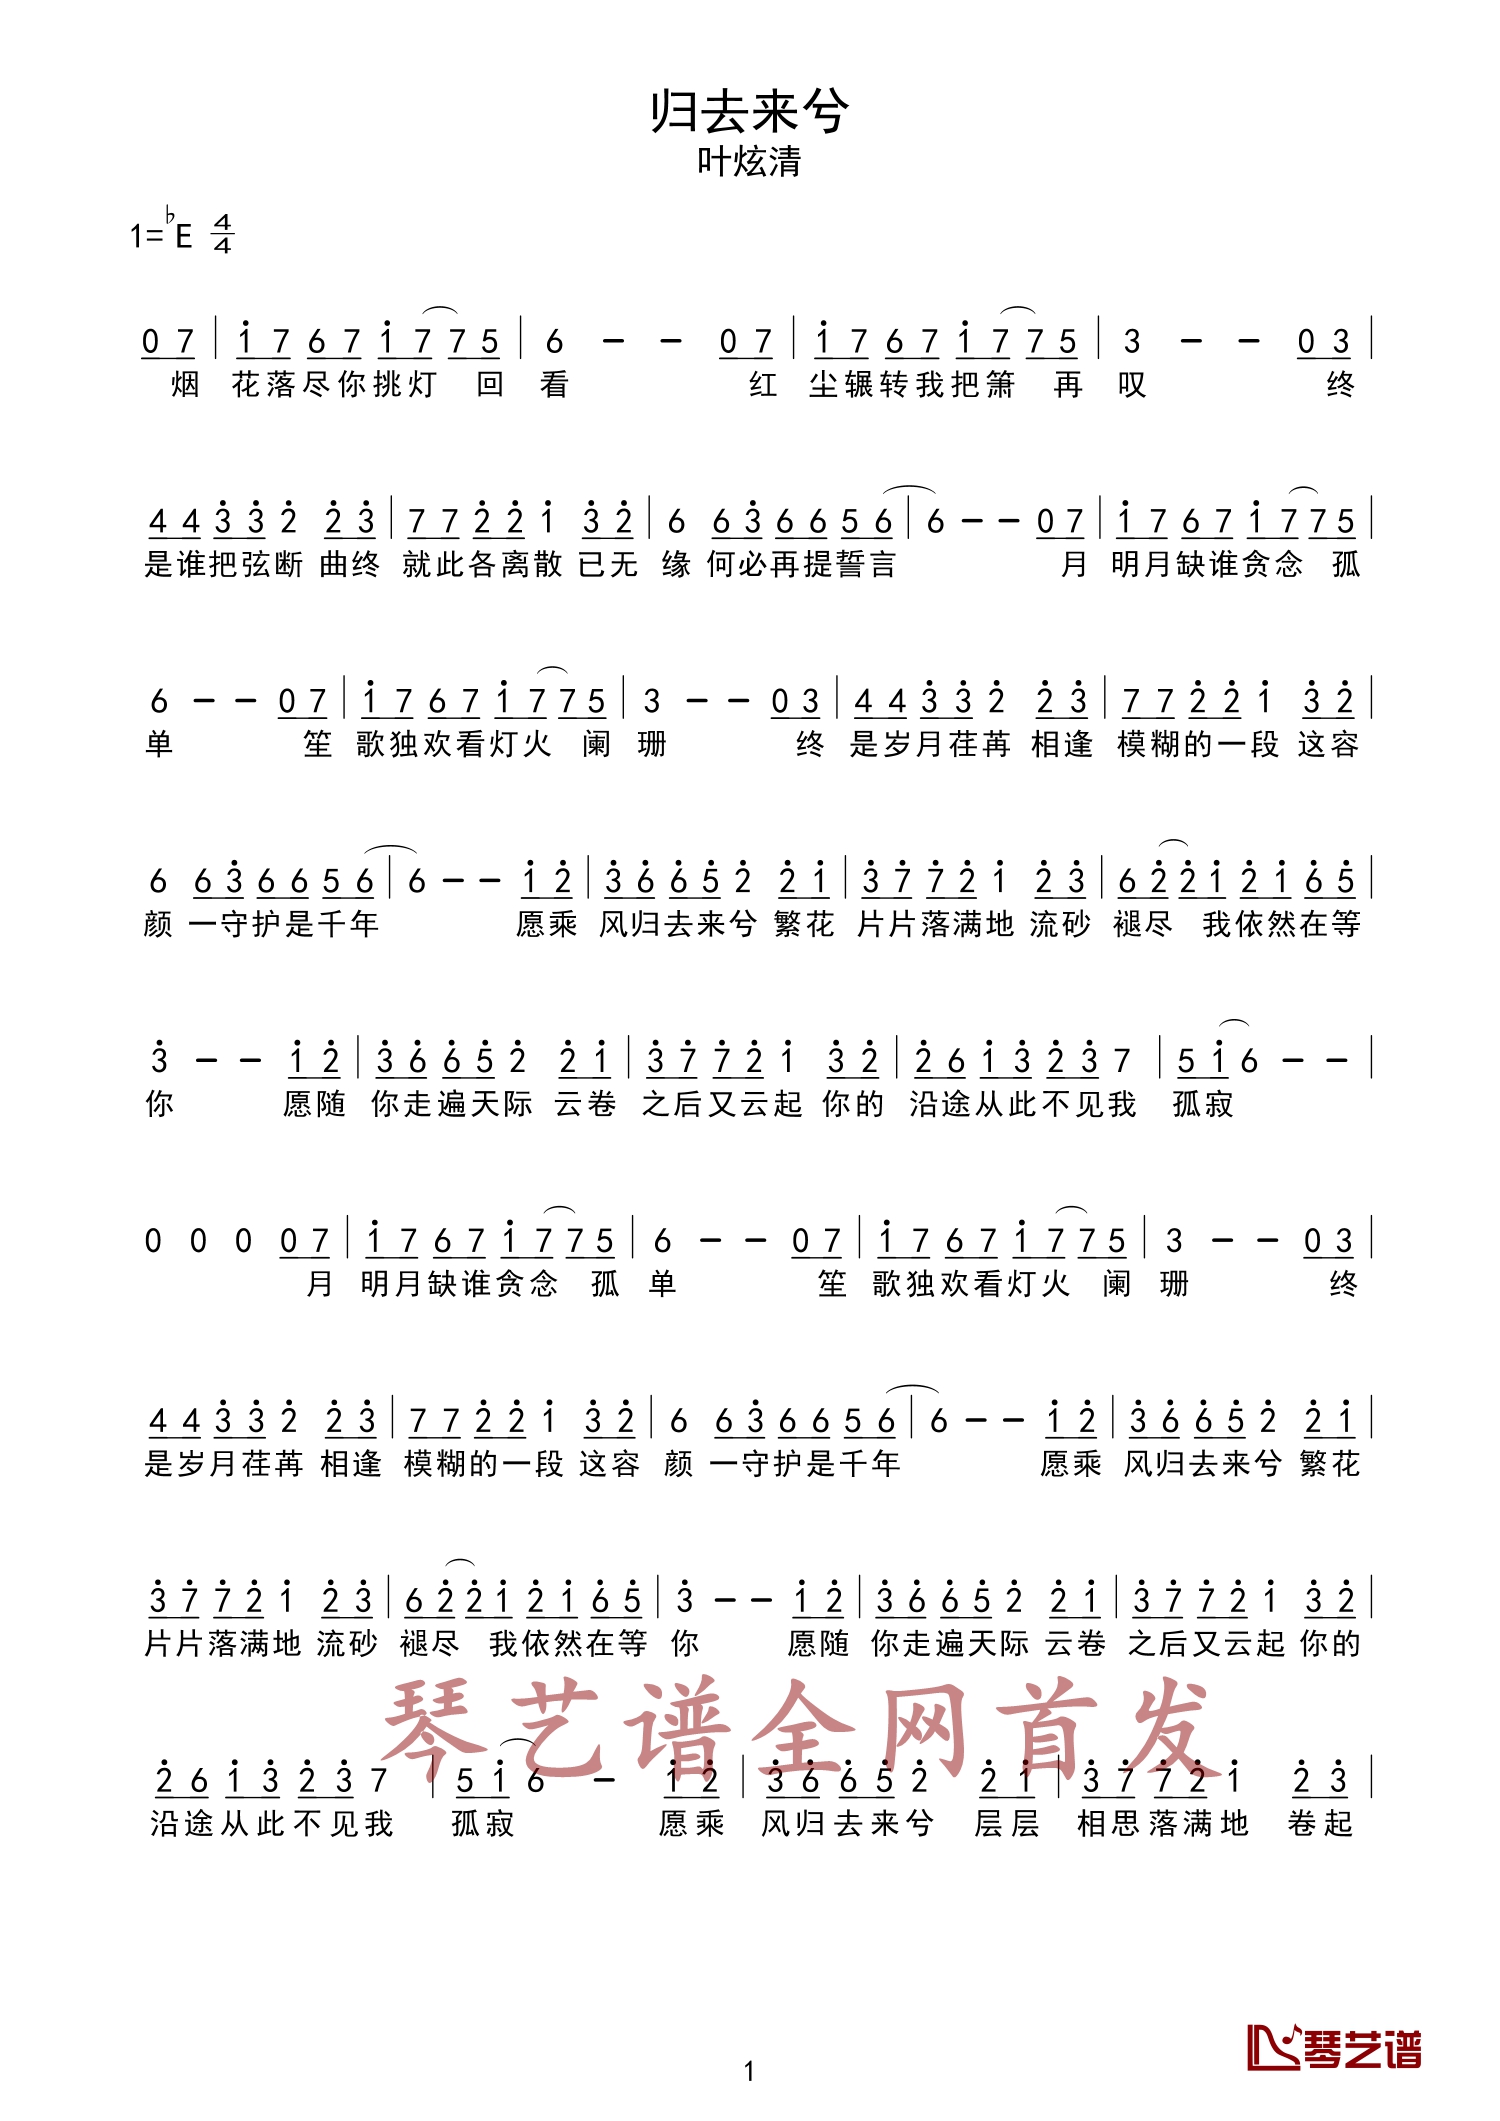 归去来兮
叶炫清
1=♭E 4/4
0 7 | 1̇ 7 6 7 1̇ 7 7 5 | 6 – – 0 7 | 1̇ 7 6 7 1̇ 7 7 5 | 3 – – 0 3 |
烟 花落尽你挑灯 回 看 红 尘辗转我把箫 再 叹 终
4 4 3̇ 3̇ 2̇ 2̇ 3̇ | 7 7 2̇ 2̇ 1̇ 3̇ 2̇ | 6 6 3̇ 6 6 5 6 | 6 – – 0 7 | 1̇ 7 6 7 1̇ 7 7 5 |
是谁把弦断 曲终 就此各离散 已无 缘 何必再提誓言 月 明月缺谁贪念 孤
6 – – 0 7 | 1̇ 7 6 7 1̇ 7 7 5 | 3 – – 0 3 | 4 4 3̇ 3̇ 2̇ 2̇ 3̇ | 7 7 2̇ 2̇ 1̇ 3̇ 2̇ |
单 笙 歌独欢看灯火 阑 珊 终 是岁月荏苒 相逢 模糊的一段 这容
6 6 3̇ 6 6 5 6 | 6 – – 1̇ 2̇ | 3̇ 6̇ 6̇ 5̇ 2̇ 2̇ 1̇ | 3̇ 7̇ 7̇ 2̇ 1̇ 2̇ 3̇ | 6 2̇ 2̇ 1̇ 2̇ 1̇ 6̇ 5̇ |
颜 一守护是千年 愿乘 风归去来兮 繁花 片片落满地 流砂 褪尽 我依然在等
3̇ – – 1̇ 2̇ | 3̇ 6̇ 6̇ 5̇ 2̇ 2̇ 1̇ | 3̇ 7̇ 7̇ 2̇ 1̇ 3̇ 2̇ | 2̇ 6 1̇ 3̇ 2̇ 3̇ 7 | 5 1̇ 6 – – |
你 愿随 你走遍天际 云卷 之后又云起 你的 沿途从此不见我 孤寂
0 0 0 0 7 | 1̇ 7 6 7 1̇ 7 7 5 | 6 – – 0 7 | 1̇ 7 6 7 1̇ 7 7 5 | 3 – – 0 3 |
月 明月缺谁贪念 孤 单 笙 歌独欢看灯火 阑 珊 终
4 4 3̇ 3̇ 2̇ 2̇ 3̇ | 7 7 2̇ 2̇ 1̇ 3̇ 2̇ | 6 6 3̇ 6 6 5 6 | 6 – – 1̇ 2̇ | 3̇ 6̇ 6̇ 5̇ 2̇ 2̇ 1̇ |
是岁月荏苒 相逢 模糊的一段 这容 颜 一守护是千年 愿乘 风归去来兮 繁花
3̇ 7̇ 7̇ 2̇ 1̇ 2̇ 3̇ | 6 2̇ 2̇ 1̇ 2̇ 1̇ 6̇ 5̇ | 3̇ – – 1̇ 2̇ | 3̇ 6̇ 6̇ 5̇ 2̇ 2̇ 1̇ | 3̇ 7̇ 7̇ 2̇ 1̇ 3̇ 2̇ |
片片落满地 流砂 褪尽 我依然在等 你 愿随 你走遍天际 云卷 之后又云起 你的
琴艺谱全网首发
2̇ 6 1̇ 3̇ 2̇ 3̇ 7 | 5 1̇ 6 – 1̇ 2̇ | 3̇ 6̇ 6̇ 5̇ 2̇ 2̇ 1̇ | 3̇ 7̇ 7̇ 2̇ 1̇ 2̇ 3̇ |
沿途从此不见我 孤寂 愿乘 风归去来兮 层层 相思落满地 卷起
琴艺谱
1